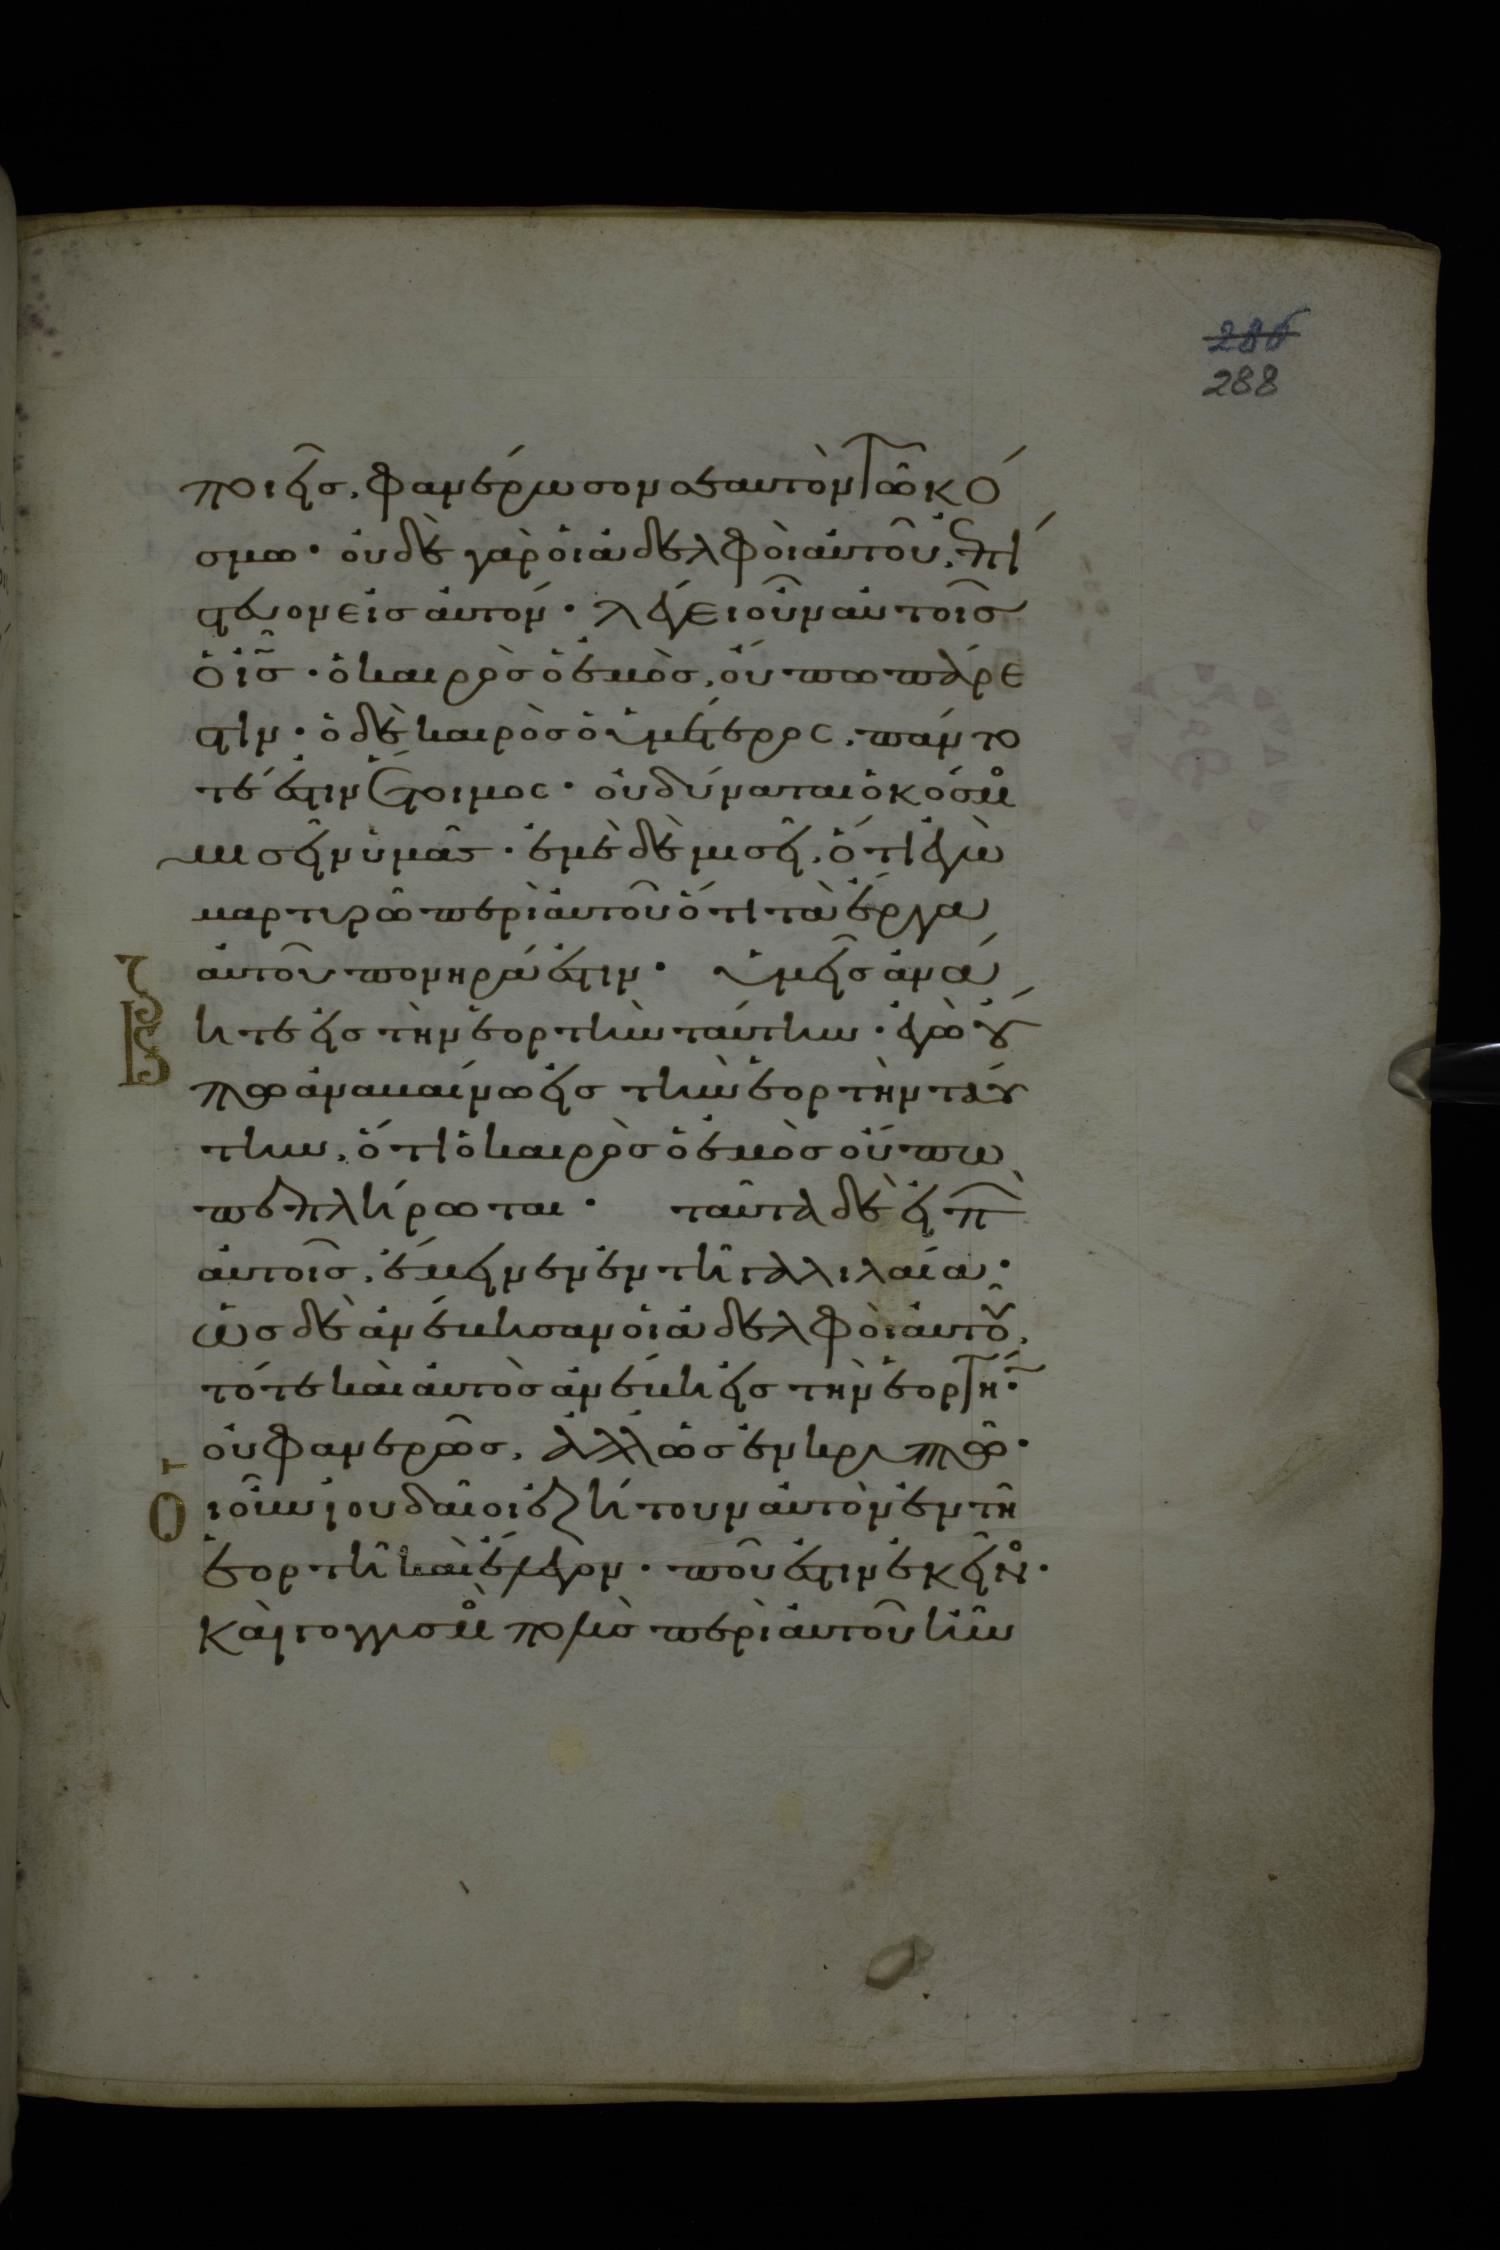 286
288
ποιεῖσ, φανέρωσον σεαυτὸν τῶ κό
σμω · οὐδὲ γὰρ οἱ ἀδελφοὶ αὐτοῦ, ἐπί
στευον εἰσ αὐτόν · λέγει οὖν αὐτοῖσ
ὁ ισ̃ · ὁ καιρὸσ ὁ ἐμὸσ, οὔπω πάρε
στιν · ὁ δὲ καιρὸσ ὁ ὑμέτεροσ, πάντο
τέ ἐστιν ἕτοιμος · οὐ δύναται ὁ κόσμο
μισεῖν ὑμᾶσ · ἐμὲ δὲ μισεῖ, ὅτι ἐγὼ
μαρτυρῶ περὶ αὐτοῦ ὅτι τὰ ἔργα
αὐτοῦ πονηρά ἐστιν · ὑμεῖσ ἀνά
βητε εἰσ τὴν ἑορτὴν ταύτην · ἐγὼ οὔ
πω ἀναβαίνω εἰσ τὴν ἑορτὴν ταύ
την, ὅτι ὁ καιρὸσ ὁ ἐμὸσ οὔπω
πεπλήρωται · ταῦτα δὲ εἰπ
αὐτοῖσ, ἔμεινεν ἐν τῆ γαλιλαία ·
ὡσ δὲ ἀνέβησαν οἱ ἀδελφοὶ αὐτοῦ,
τότε καὶ αὐτὸσ ἀνέβη εἰσ τὴν ἑορτή ·
οὐ φανερῶσ, ἀλλ ὡσ ἐν κρυπτῶ ·
Ο
ι οὖν ἰουδαῖοι ἐζήτουν αὐτὸν ἐν τῆ
ἑορτῆ καὶ ἔλεγον · ποῦ ἐστιν ἐκεῖνο ·
Καὶ γογγισμο πολὺσ περὶ αὐτοῦ ἦν